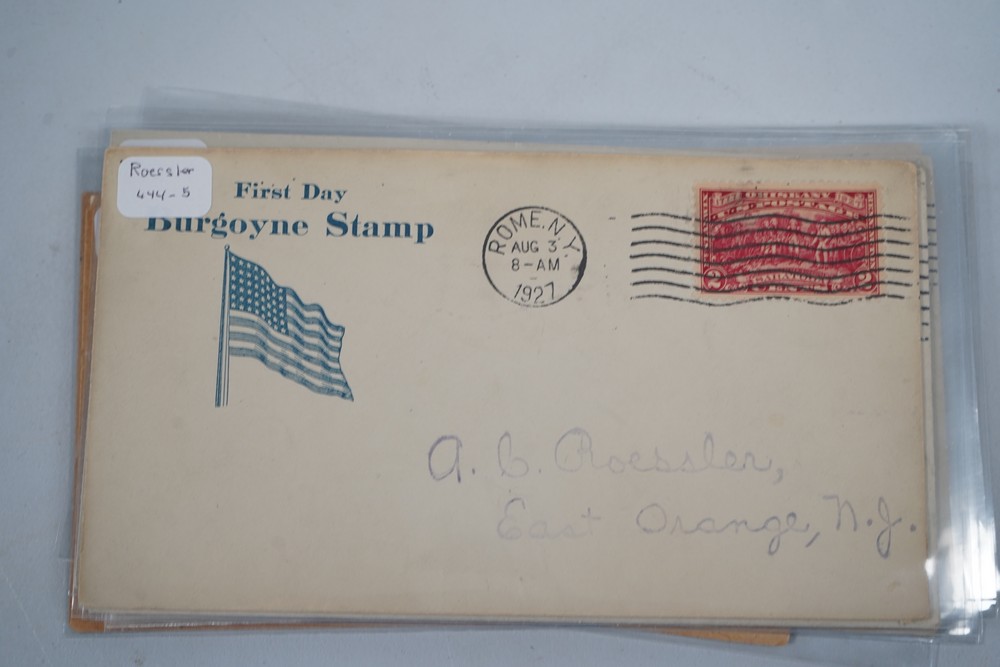 Roessler
444-5
First Day
Burgoyne Stamp
ROME. N.Y.
AUG 3
8-AM
1927
ORISKANY
2 2
A. C. Roessler,
East Orange, N.J.